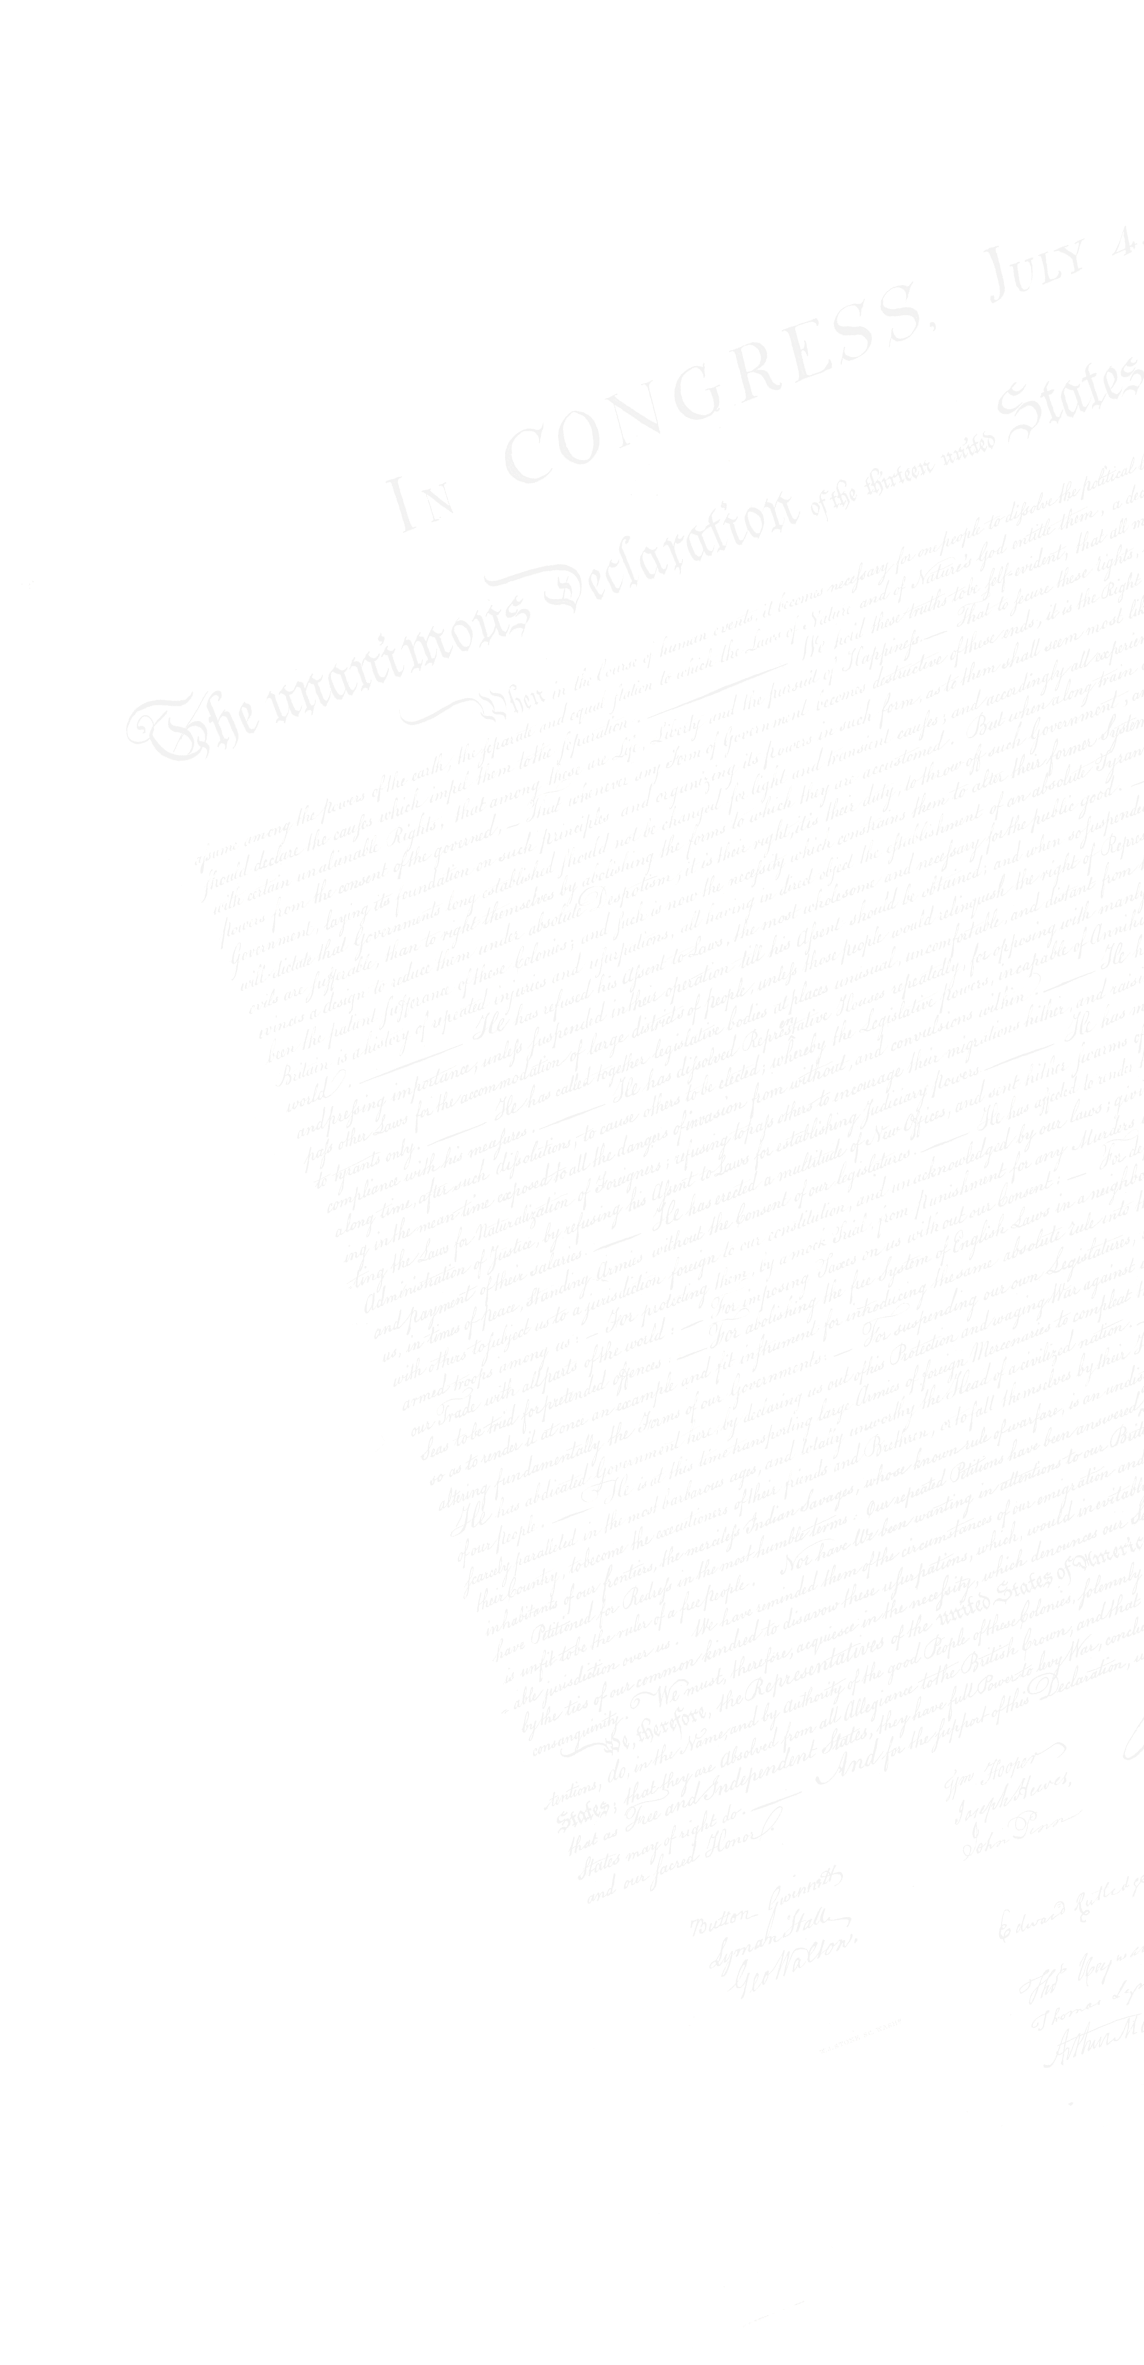 IN CONGRESS, JULY 4.
The unanimous Declaration of the thirteen united States
When in the Course of human events, it becomes necessary for one people to dissolve the political
assume among the powers of the earth, the separate and equal station to which the Laws of Nature and of Nature's God entitle them, a
should declare the causes which impel them to the separation. — We hold these truths to be self-evident, that all
with certain unalienable Rights, that among these are Life, Liberty and the pursuit of Happiness. — That to secure these rights,
powers from the consent of the governed, — That whenever any Form of Government becomes destructive of these ends, it is the Right
Government, laying its foundation on such principles and organizing its powers in such form, as to them shall seem most
will dictate that Governments long established should not be changed for light and transient causes; and accordingly all
evils are sufferable, than to right themselves by abolishing the forms to which they are accustomed. But when a long train
evinces a design to reduce them under absolute Despotism, it is their right, it is their duty, to throw off such Government,
been the patient sufferance of these Colonies; and such is now the necessity which constrains them to alter their former System
Britain is a history of repeated injuries and usurpations, all having in direct object the establishment of an absolute
world. — He has refused his Assent to Laws, the most wholesome and necessary for the public good. —
and pressing importance, unless suspended in their operation till his Assent should be obtained; and when so
pass other Laws for the accommodation of large districts of people, unless those people would relinquish the right of
to tyrants only. — He has called together legislative bodies at places unusual, uncomfortable, and distant from
compliance with his measures. — He has dissolved Representative Houses repeatedly, for opposing with
a long time, after such dissolutions, to cause others to be elected; whereby the Legislative powers, incapable of
ing in the mean time exposed to all the dangers of invasion from without, and convulsions within. — He
ting the Laws for Naturalization of Foreigners; refusing to pass others to encourage their migrations hither, and
Administration of Justice, by refusing his Assent to Laws for establishing Judiciary powers. — He has
and payment of their salaries. — He has erected a multitude of New Offices, and sent hither swarms of
us, in times of peace, Standing Armies without the Consent of our legislatures. — He has affected to
with others to subject us to a jurisdiction foreign to our constitution, and unacknowledged by our laws;
armed troops among us: — For protecting them, by a mock Trial from punishment for any Murders
our Trade with all parts of the world: — For imposing Taxes on us without our Consent: — For
Seas to be tried for pretended offences — For abolishing the free System of English Laws in a
so as to render it at once an example and fit instrument for introducing the same absolute rule into
altering fundamentally the Forms of our Governments: — For suspending our own Legislatures,
He has abdicated Government here, by declaring us out of his Protection and waging War against
of our people. — He is at this time transporting large Armies of foreign Mercenaries to compleat
scarcely paralleled in the most barbarous ages, and totally unworthy the Head of a civilized nation. —
their Country, to become the executioners of their friends and Brethren, or to fall themselves by their
inhabitants of our frontiers, the merciless Indian Savages, whose known rule of warfare, is an
have Petitioned for Redress in the most humble terms: Our repeated Petitions have been answered
is unfit to be the ruler of a free people. Nor have We been wanting in attentions to our
able jurisdiction over us. We have reminded them of the circumstances of our emigration and
by the ties of our common kindred to disavow these usurpations, which, would inevitably
consanguinity. We must, therefore, acquiesce in the necessity, which denounces our
We, therefore, the Representatives of the united States of
tentions, do, in the Name, and by Authority of the good People of these Colonies, solemnly
States; that they are Absolved from all Allegiance to the British Crown, and that
that as Free and Independent States, they have full Power to levy War,
States may of right do. — And for the support of this Declaration,
and our sacred Honor.
Button Gwinnett
Lyman Hall
Geo Walton.
Joseph Hewes,
John Penn
Edward Rutledge
Thos
Thomas
Arthur